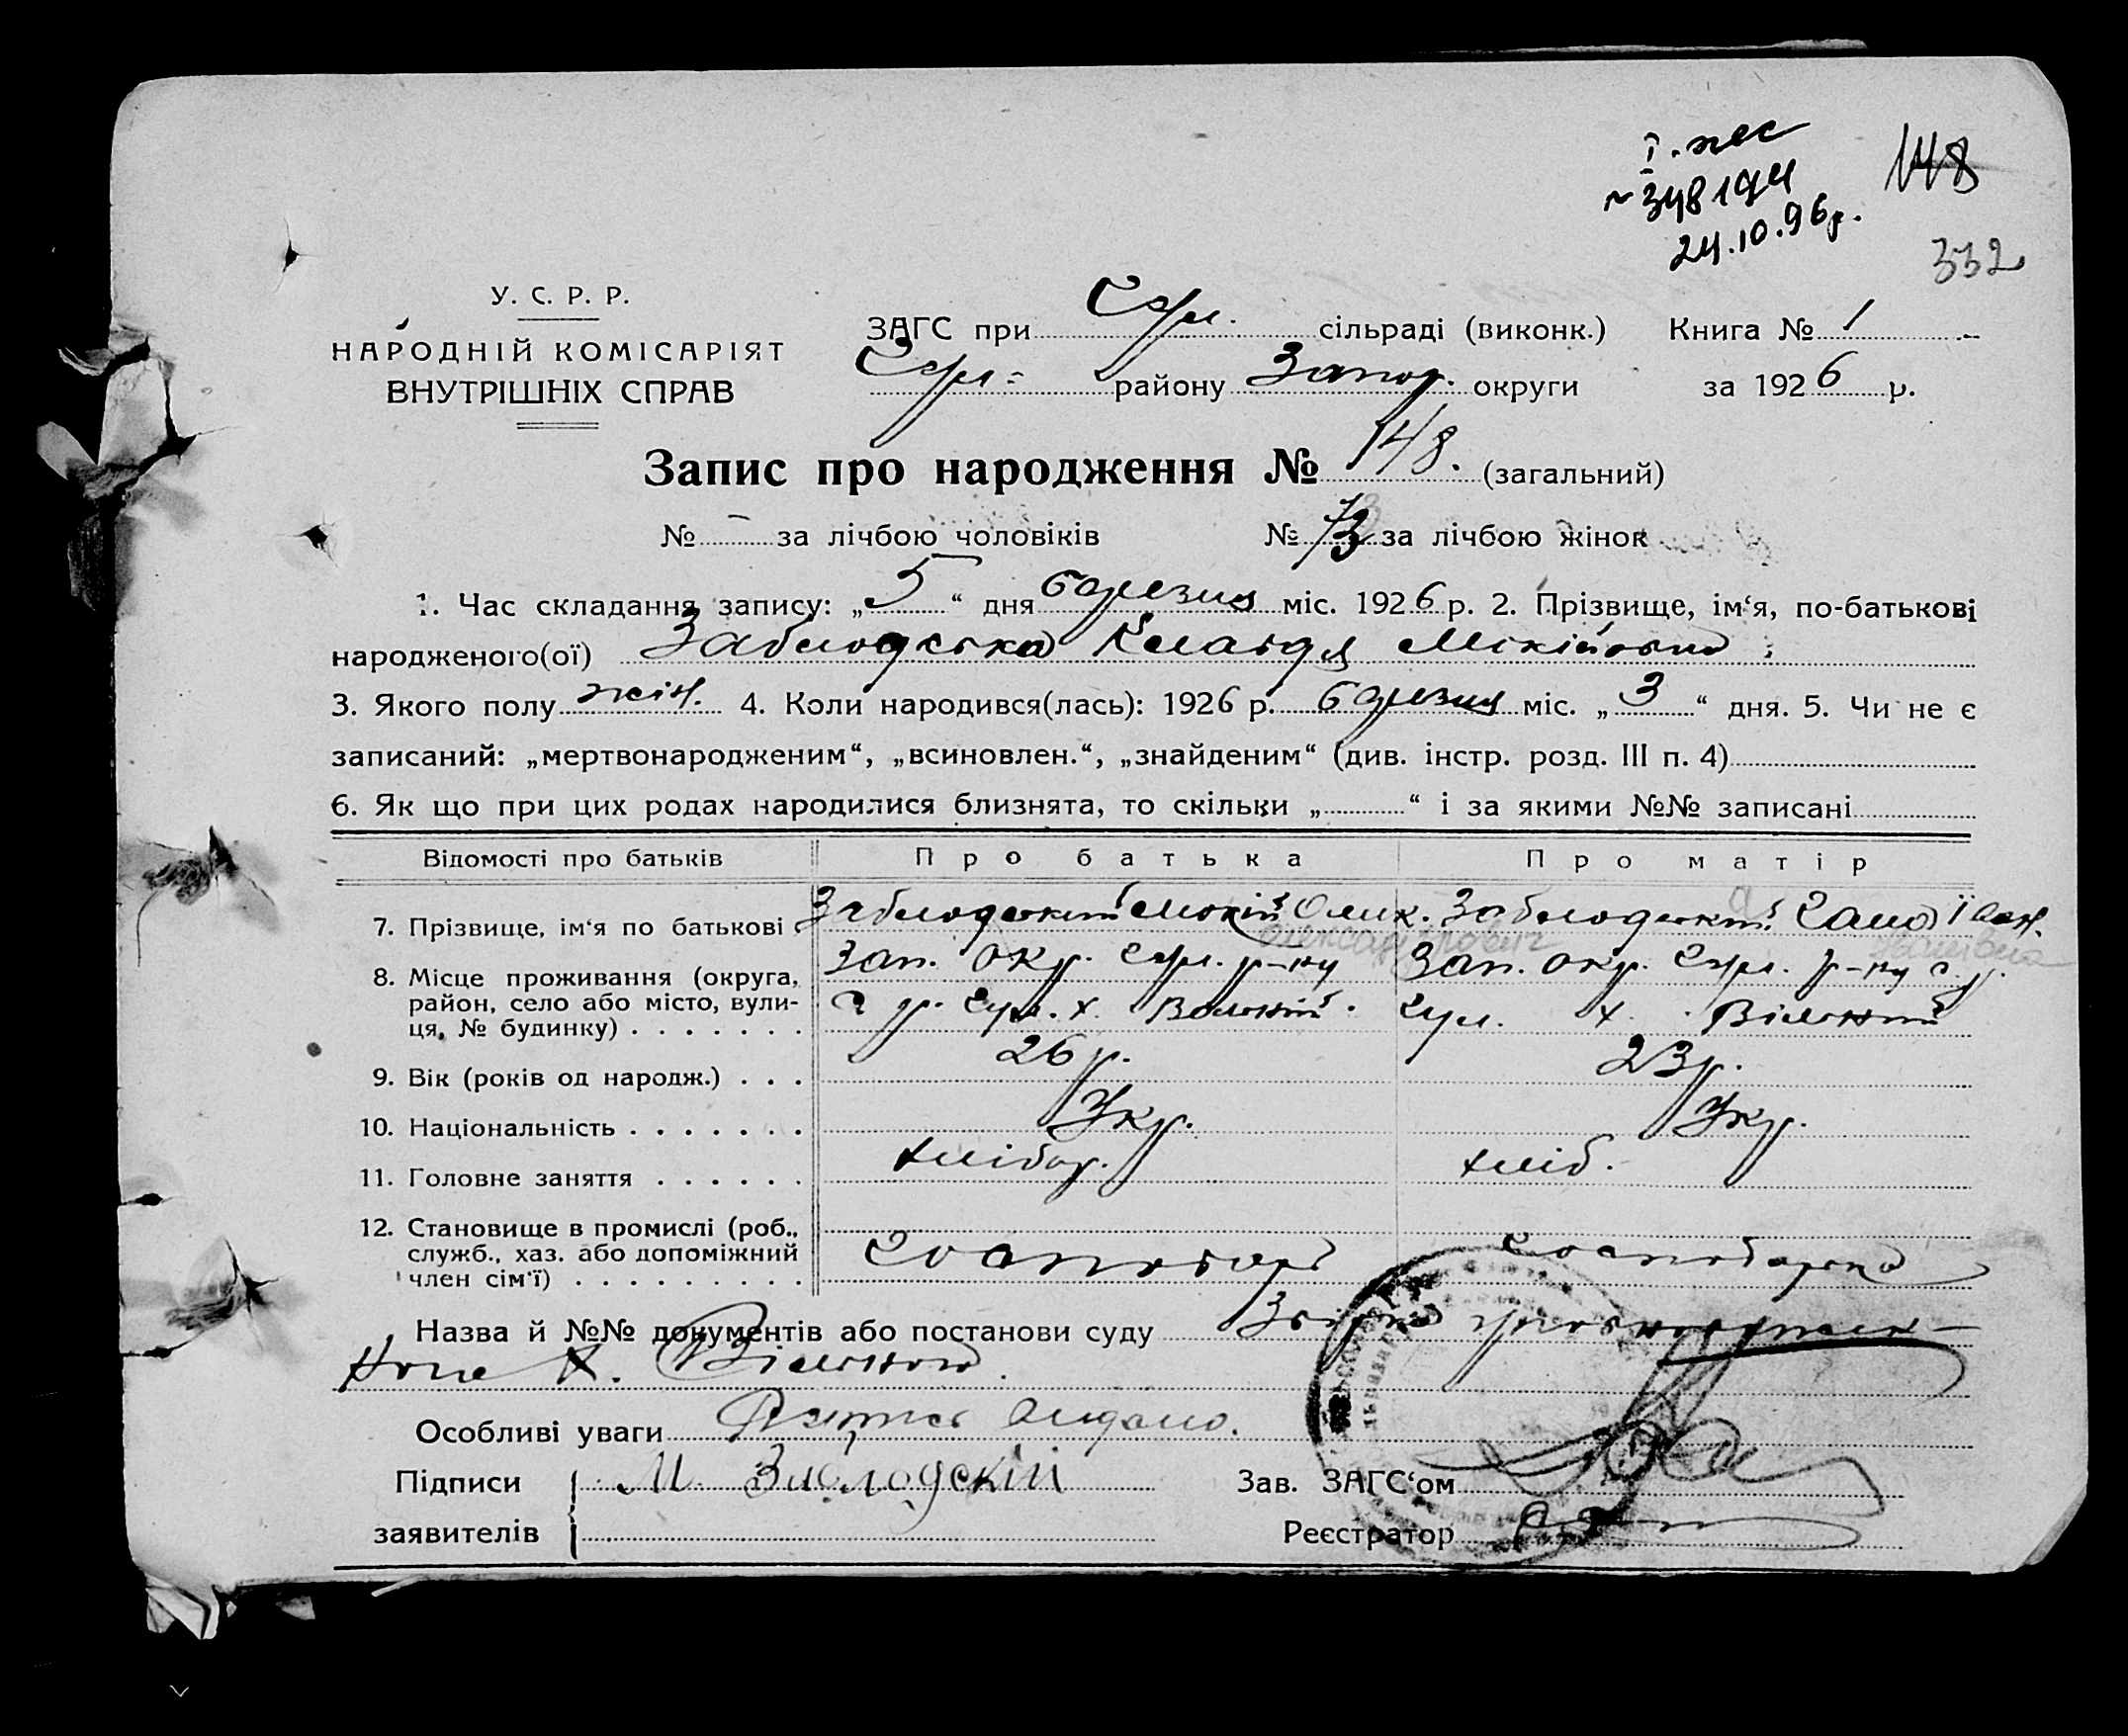 148
24.10.96р.
332
У. С. Р. Р.
НАРОДНІЙ КОМІСАРІЯТ
ВНУТРІШНІХ СПРАВ
ЗАГС при сільраді (виконк.) Книга № 1
району Запор. округи за 1926 р.
Запис про народження № 148. (загальний)
№ – за лічбою чоловіків № 73 за лічбою жінок
1. Час складання запису: „5“ дня березня міс. 1926 р. 2. Прізвище, ім‘я, по-батькові
народженого(ої) Заблодська Клавдя Мокіівна
3. Якого полу жін. 4. Коли народився(лась): 1926 р. березня міс. „3“ дня. 5. Чи не є
записаний: „мертвонародженим“, „всиновлен.“, „знайденим“ (див. інстр. розд. III п. 4)
6. Як що при цих родах народилися близнята, то скільки „ “ і за якими №№ записані
Відомості про батьків Про батька Про матір
7. Прізвище, ім‘я по батькові Заблодський Мокій Олик. Заблодський
8. Місце проживання (округа, Зап. окр. р-ну Зап. окр. р-ну
район, село або місто, вули-
ця, № будинку) х. Вільний. х. Вільний
9. Вік (років од народж.) 26 р. 23 р.
10. Національність Укр. Укр.
11. Головне заняття хлібор. хліб.
12. Становище в промислі (роб.,
служб., хаз. або допоміжний
член сім‘ї) Господарь Господарка
Назва й №№ документів або постанови суду
х. Вільного.
Особливі уваги
Підписи М. Заблодский Зав. ЗАГС‘ом
заявителів Реєстратор